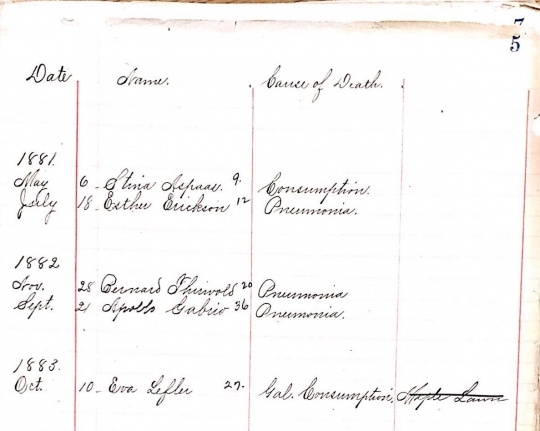 7
5
Date Name. Cause of Death.
1881.
May 6 - Stina Aspaas. 9. Consumption.
July 18 - Esther Erickson 12 Pneumonia.
1882
Nov. 28 Bernard Thirwold 20 Pneumonia
Sept. 21 Apollo 36 Pneumonia.
1883.
Oct. 10 - Eva Lefler 27. Gal. Consumption, Maple Lawn